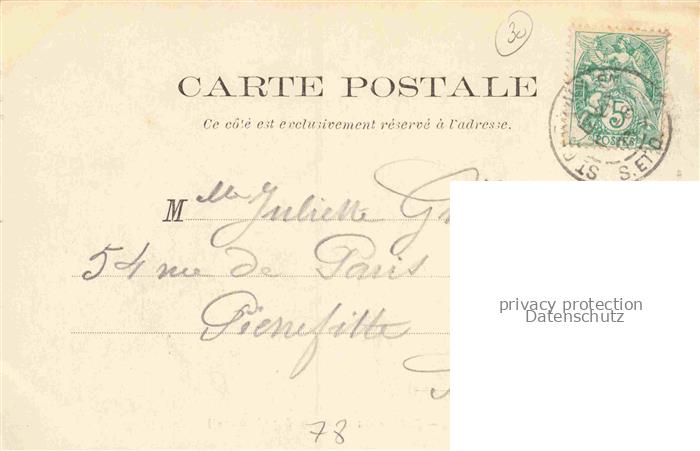 30
CARTE POSTALE
Ce côté est exclusivement réservé à l'adresse.
5
POSTES
S. ET O.
Mlle Juliette
54 rue de Paris
Pierrefitte
privacy protection
Datenschutz
78